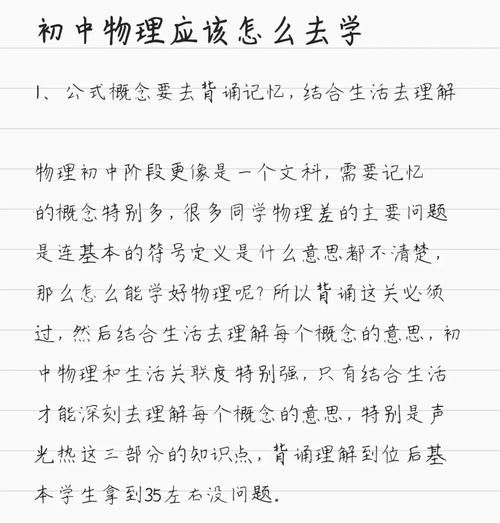 初中物理应该怎么去学
1、公式概念要去背诵记忆,结合生活去理解
物理初中阶段更像是一个文科,需要记忆
的概念特别多,很多同学物理差的主要问题
是连基本的符号定义是什么意思都不清楚,
那么怎么能学好物理呢?所以背诵这关必须
过,然后结合生活去理解每个概念的意思,初
中物理和生活关联度特别强,只有结合生活
才能深刻去理解每个概念的意思,特别是声
光热这三部分的知识点,背诵理解到位后基
本学生拿到35左右没问题。